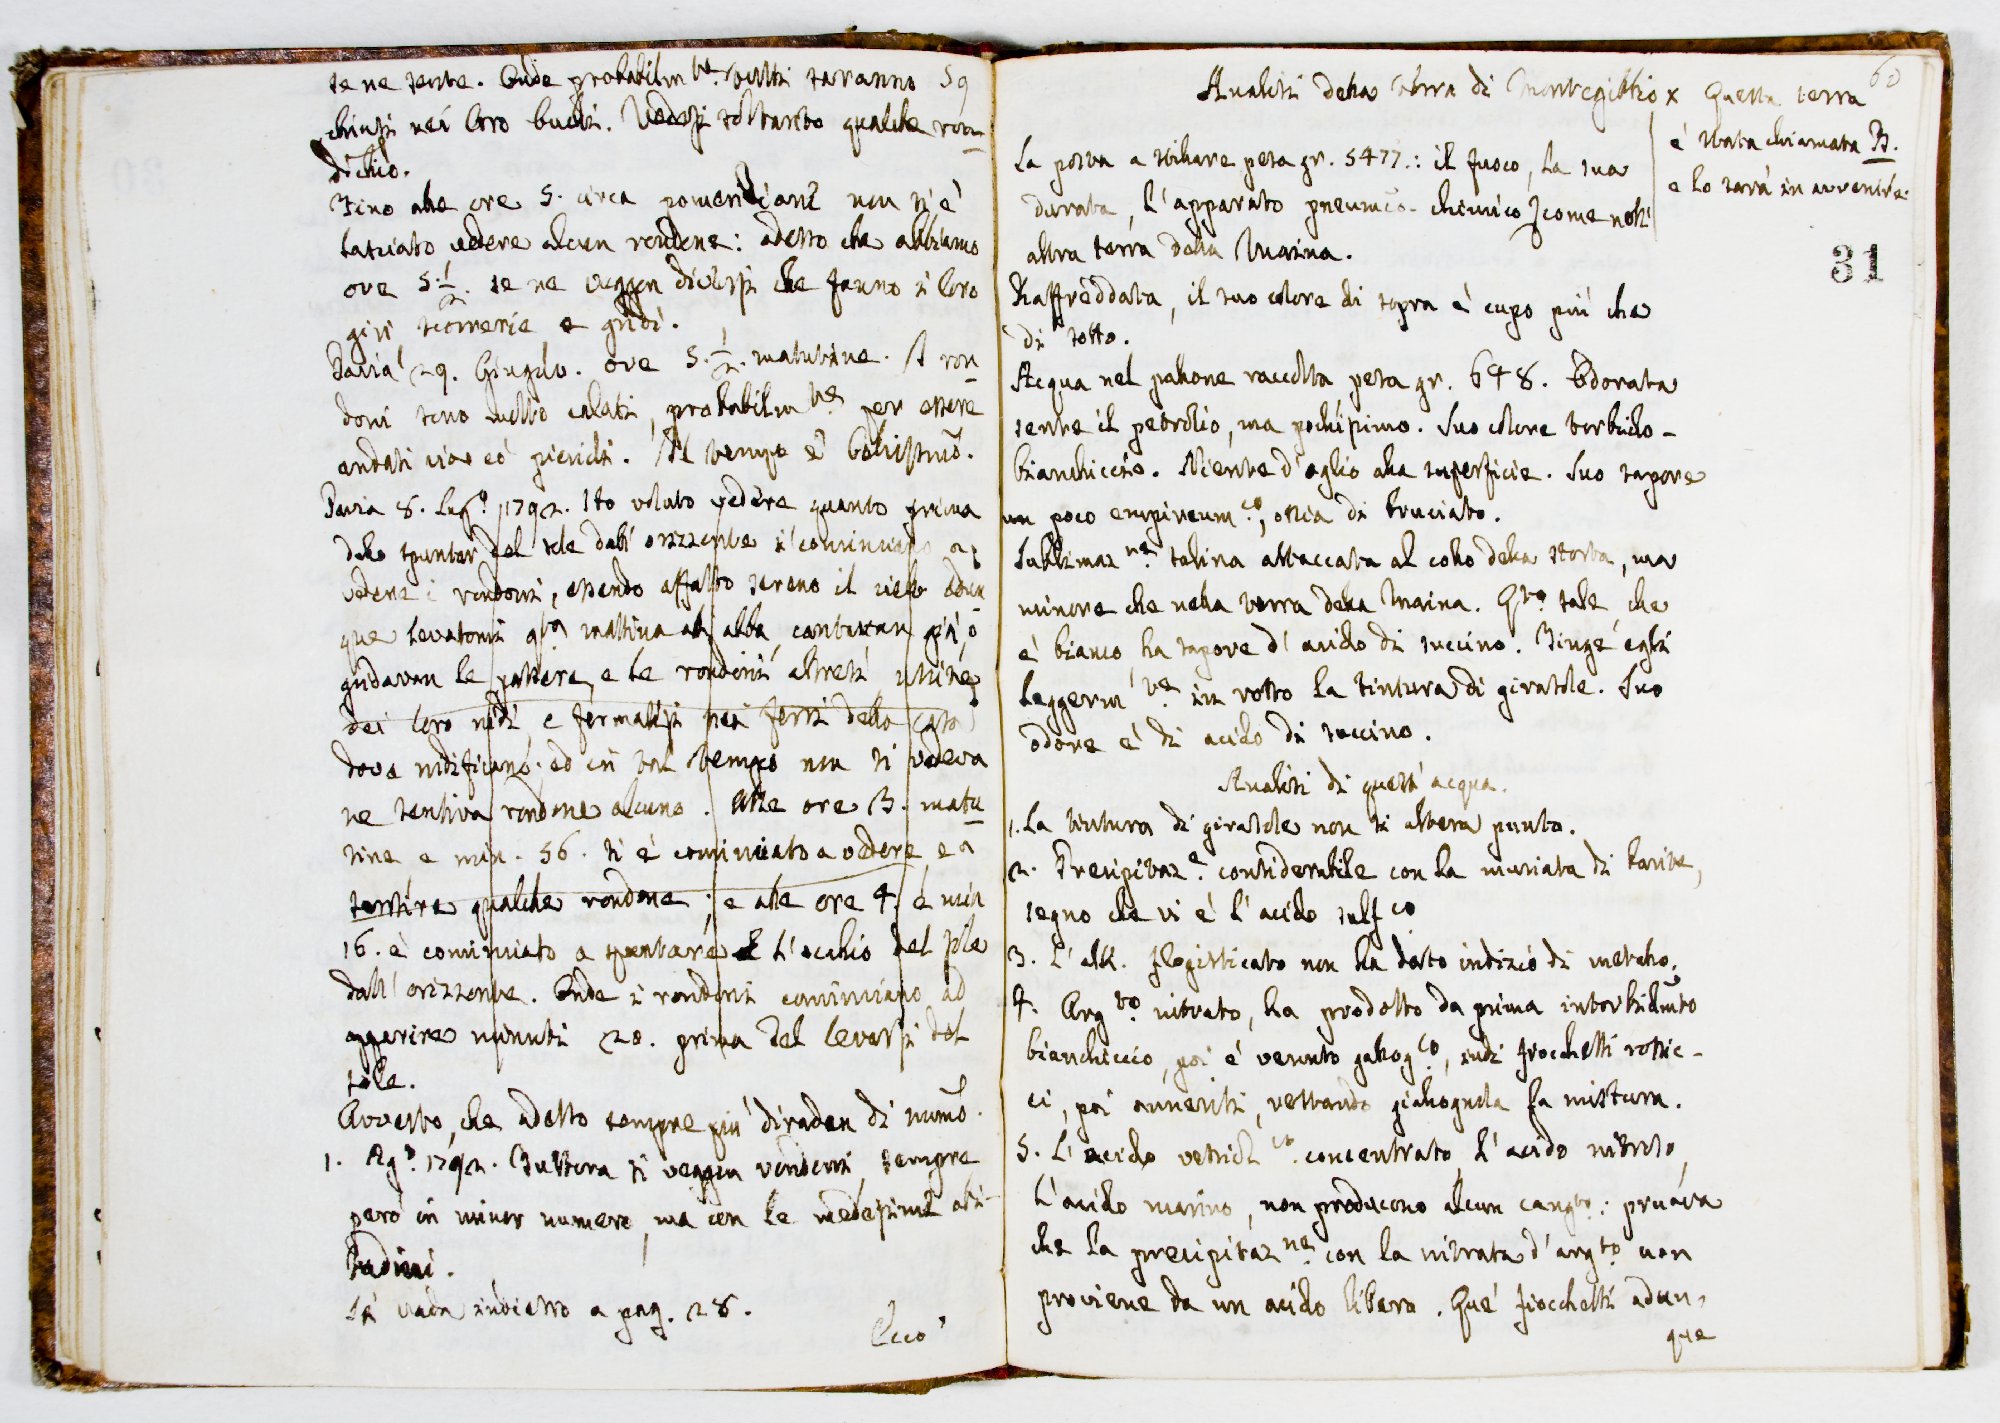 se ne sente. Onde probabilm.te molti saranno 59
chiusi nei loro buchi. Vedesi soltanto qualche ron=
dichio.
Fino alle ore 5. circa pomeridiane non si è
lasciato vedere alcun rondone: adesso che abbiamo
ore 5 1/2. se ne veggon diversi che fanno i loro
giri, scorrerie e gridi.
Pavia 29. Giugno. ore 5. 1/2. matutine. I ron=
doni sono molto calati, probabilm.te per essere
andati via co' piccioli. Il tempo è bellissimo.
Pavia 8. Lug.o 1792. Ho voluto vedere quanto prima
dello spuntar del sole dall' orizzonte si cominciano a
vedere i rondoni, essendo affatto sereno il cielo. Adun
que levatomi q.ta mattina all' alba, cantavan già, o
gridavan le passere, e le rondini altresì uscite
dei loro nidi e fermatesi nei ferri della casa
dove nidificano: ed in tal tempo non si vedeva
ne sentiva rondone alcuno. Alle ore 3. matu
tine e min. 56. si è cominciato a vedere, e a
sentire qualche rondone; e alle ore 4. e min
16. è cominciato a spuntare l'occhio del sole
dall' orizzonte. Onde i rondoni cominciano ad
apparire minuti 20. prima del levarsi del
sole.
Avverto, che adesso sempre più diradan di numō.
1. Ag.o 1792. Tuttora si veggon rondoni, sempre
però in minor numero, ma con le medesime abi=
tudini.
Si vada indietro a pag. 28.
Ecco
Analisi della terra di Montegibbio x Questa terra 60
è stata chiamata B.
e lo sarà in avvenire.
31
La posta a stillare pesa gr. 5477.: il fuoco, la sua
durata, l'apparato pneumᵒ-chimico come nell'
altra terra della Maina.
Raffreddata, il suo colore di sopra è cupo più che
di sotto.
Acqua nel pallone raccolta pesa gr. 648. Odorata
sente il petrolio, ma pochissimo. Suo colore torbido-
bianchiccio. Niente d'oglio alla superficie. Suo sapore
un poco empireum.co, ossia di bruciato.
Sublimaz.ne salina attaccata al collo della storta, ma
minore che nella terra della Maina. Q.to sale, che
è bianco, ha sapore d'acido di succino. Tinge egli
leggerm.te in rosso la tintura di girasole. Suo
odore è di acido di succino.
Analisi di quest' acqua.
1. La tintura di girasole non si altera punto.
2. Precipitaz.e considerabile con la muriata di barite,
segno che vi è l'acido sulf.co
3. L'alk. flogisticato non ha dato indizio di metallo.
4. Arg.to nitrato, ha prodotto da prima intorbidamto
bianchiccio, poi è venuto gallog.lo, indi fiocchetti rossic-
ci, poi anneriti, restando giallognola la mistura.
5. L'acido vetriol.co concentrato, l'acido nitroso,
l'acido marino, non producono alcun cang.to: pruova
che la precipitaz.ne con la nitrata d'arg.to non
proviene da un acido libero. Que' fiocchetti adun=
que